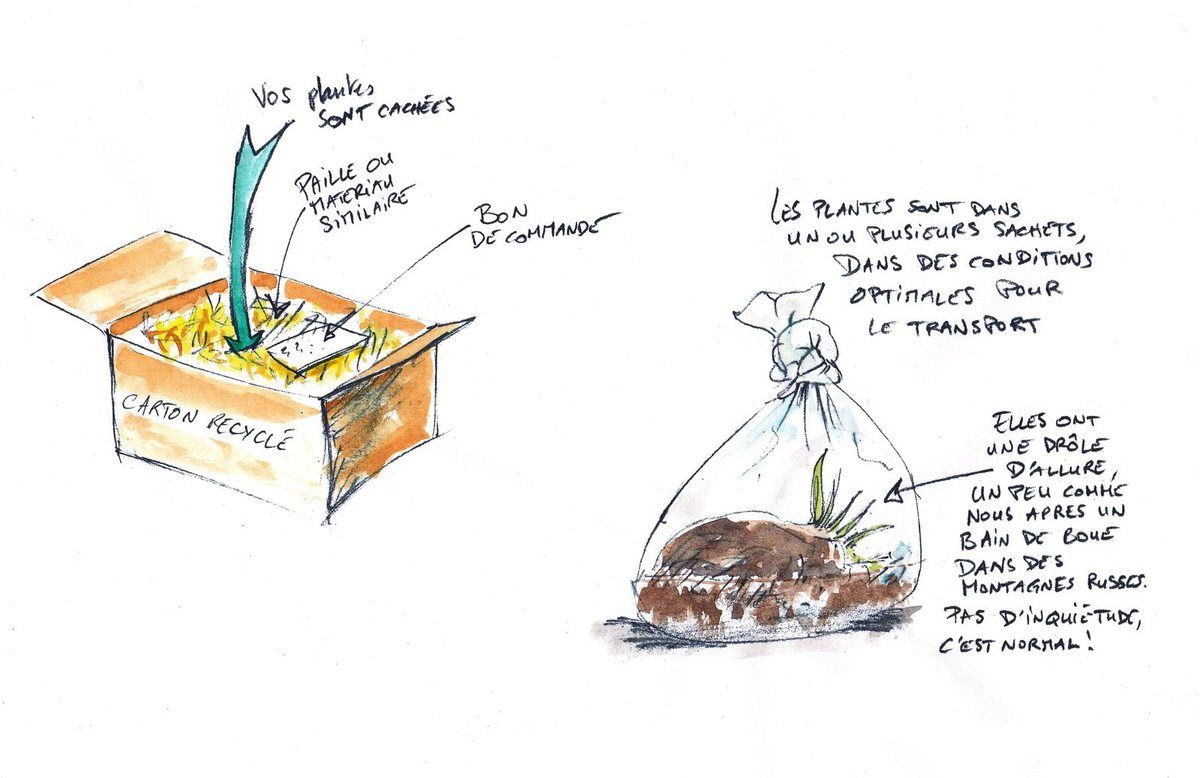 Vos plantes
SONT CACHÉES
PAILLE OU
MATERIAU
SIMILAIRE
BON
DE COMMANDE
CARTON RECYCLÉ
LES PLANTES SONT DANS
UN OU PLUSIEURS SACHETS,
DANS DES CONDITIONS
OPTIMALES POUR
LE TRANSPORT
ELLES ONT
UNE DRÔLE
D'ALLURE,
UN PEU COMME
NOUS APRES UN
BAIN DE BOUE
DANS DES
MONTAGNES RUSSES.
PAS D'INQUIÉTUDE,
C'EST NORMAL!